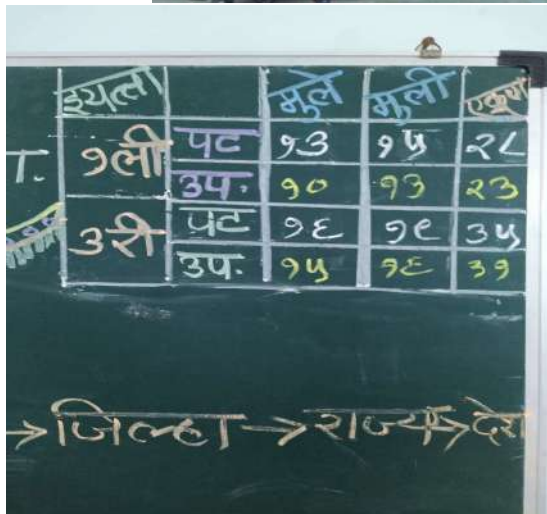 इयत्ता मुले मुली एकूण
१ली पट १३ १५ २८
उप. १० १३ २३
३री पट १६ १९ ३५
उप. १५ १६ ३१
→ जिल्हा → राज्य → देश